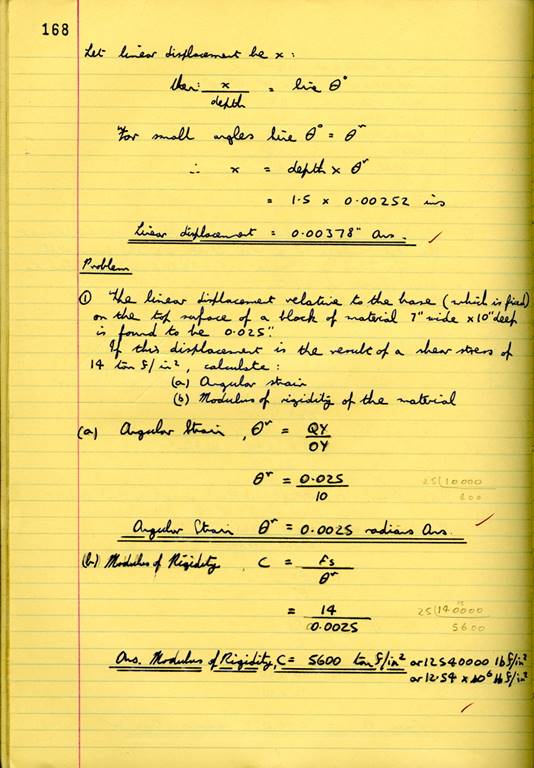 168
Let linear displacement be x :
then: x / depth = line θ°
For small angles line θ° = θʳ
∴ x = depth x θʳ
= 1.5 x 0.00252 ins
Linear displacement = 0.00378" Ans.
Problem
① The linear displacement relative to the base (which is fixed)
on the top surface of a block of material 7" wide x 10" deep
is found to be 0.025".
If this displacement is the result of a shear stress of
14 ton f/in², calculate :
(a) Angular strain
(b) Modulus of rigidity of the material
(a) Angular Strain, θʳ = QY / OY
θʳ = 0.025 / 10
25(10000
200
Angular Strain θʳ = 0.0025 radians Ans.
(b) Modulus of Rigidity C = Fs / θʳ
= 14 / 0.0025
25(140000
5600
Ans. Modulus of Rigidity, C = 5600 ton f/in² or 12540000 lb f/in²
or 12.54 x 10⁶ lb f/in²